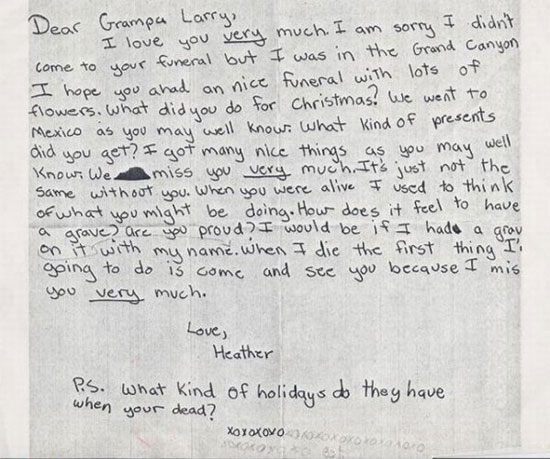 Dear Grampa Larry,
I love you very much. I am sorry I didn't
come to your funeral but I was in the Grand Canyon
I hope you ahad an nice funeral with lots of
flowers. What did you do for Christmas? We went to
Mexico as you may well know. What kind of presents
did you get? I got many nice things as you may well
know. We miss you very much. It's just not the
same without you. When you were alive I used to think
of what you might be doing. How does it feel to have
a grave? are you proud? I would be if I had a grav
on it with my name. When I die the first thing I'
going to do is come and see you because I mis
you very much.
Love,
Heather
P.S. what kind of holidays do they have
when your dead?
xoxoxoxo